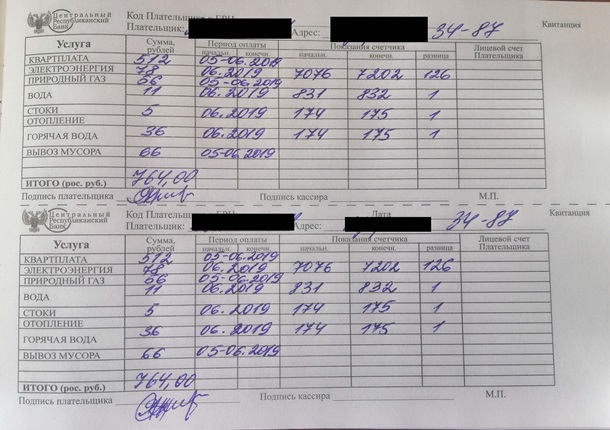 Центральный Республиканский Банк Код Плательщика Квитанция
Плательщик: Адрес: 34-87
Услуга Сумма, рублей Период оплаты Показания счетчика Лицевой счет Плательщика
начальн. конечн. начальн. конечн. разница
КВАРТПЛАТА 512 05-06.2019
ЭЛЕКТРОЭНЕРГИЯ 78 06.2019 7076 7202 126
ПРИРОДНЫЙ ГАЗ 66 05-06.2019
ВОДА 11 06.2019 831 832 1
СТОКИ 5 06.2019 174 175 1
ОТОПЛЕНИЕ
ГОРЯЧАЯ ВОДА 36 06.2019 174 175 1
ВЫВОЗ МУСОРА 66 05-06.2019
ИТОГО (рос. руб.) 764,00
Подпись плательщика Подпись кассира М.П.
Центральный Республиканский Банк Код Дата Квитанция
Плательщик: Адрес: 34-87
Услуга Сумма, рублей Период оплаты Показания счетчика Лицевой счет Плательщика
начальн. конечн. начальн. конечн. разница
КВАРТПЛАТА 512 05-06.2019
ЭЛЕКТРОЭНЕРГИЯ 78 06.2019 7076 7202 126
ПРИРОДНЫЙ ГАЗ 66 05-06.2019
ВОДА 11 06.2019 831 832 1
СТОКИ 5 06.2019 174 175 1
ОТОПЛЕНИЕ
ГОРЯЧАЯ ВОДА 36 06.2019 174 175 1
ВЫВОЗ МУСОРА 66 05-06.2019
ИТОГО (рос. руб.) 764,00
Подпись плательщика Подпись кассира М.П.